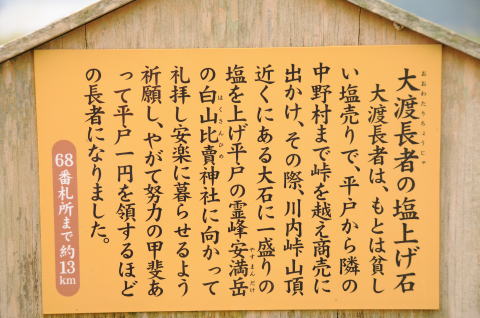 大渡長者の塩上げ石
おおわたりちょうじゃ
大渡長者は、もとは貧し
い塩売りで、平戸から隣の
中野村まで峠を越え商売に
出かけ、その際、川内峠山頂
近くにある大石に一盛りの
塩を上げ平戸の霊峰安満岳
やすまんだけ
の白山比賣神社に向かって
はくさんひめ
礼拝し安楽に暮らせるよう
祈願し、やがて努力の甲斐あ
って平戸一円を領するほど
の長者になりました。
68番札所まで約13km